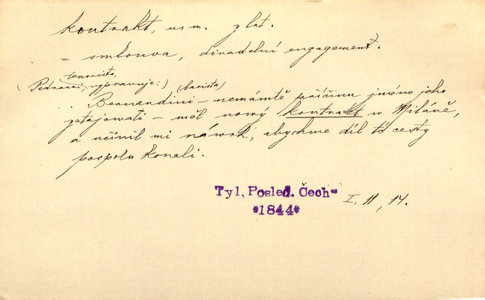 kontrakt, us. m. zlat.
= smlouva, divadelní engagement.
tenorista
(Pedrazzi, vypravuje:) (basista)
Bernardini – nemámť příčinu jméno jeho
zatajovati – měl nový kontrakt v Miláně,
a učinil mi návrh, abychme díl té cesty
pospolu konali.
Tyl, Posled. Čech=
*1844*
I. 11, 14.